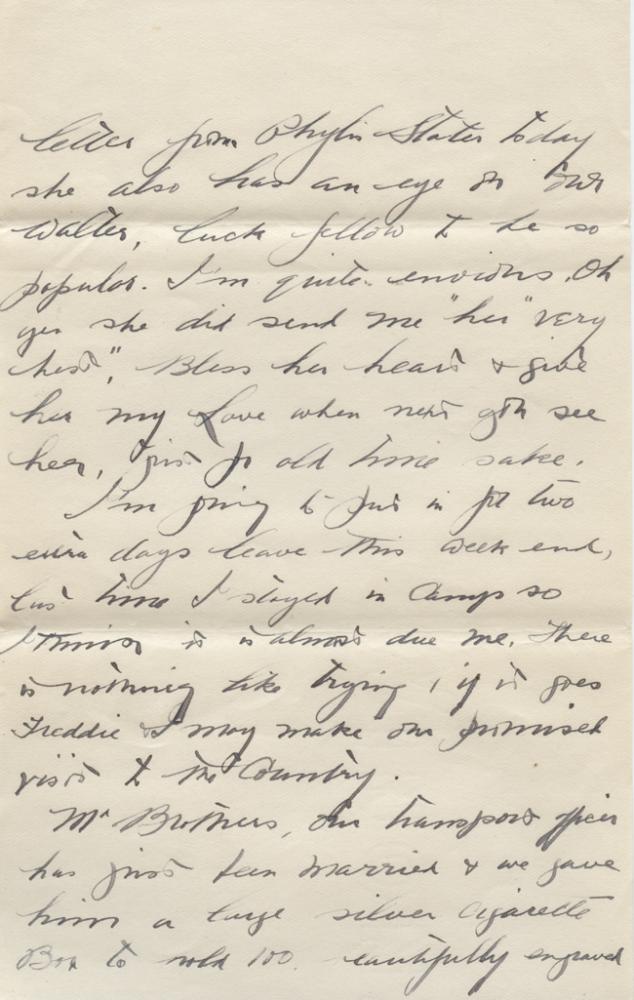 letter from Phylis Slater today
she also has an eye on our
Walter, luck fellow to be so
popular. I'm quite envious. Oh
yes she did send me "her" very
best", Bless her heart & give
her my Love when next you see
her, just for old time sake.
I'm going to put in for two
extra days leave this week end,
last time I stayed in Camp so
I think it is almost due me. There
is nothing like trying, if it goes
Freddie & I may make our promised
visit to the Country.
Mr Brothers, our transport officer
has just been married & we gave
him a large silver cigarette
Box to hold 100. beautifully engraved